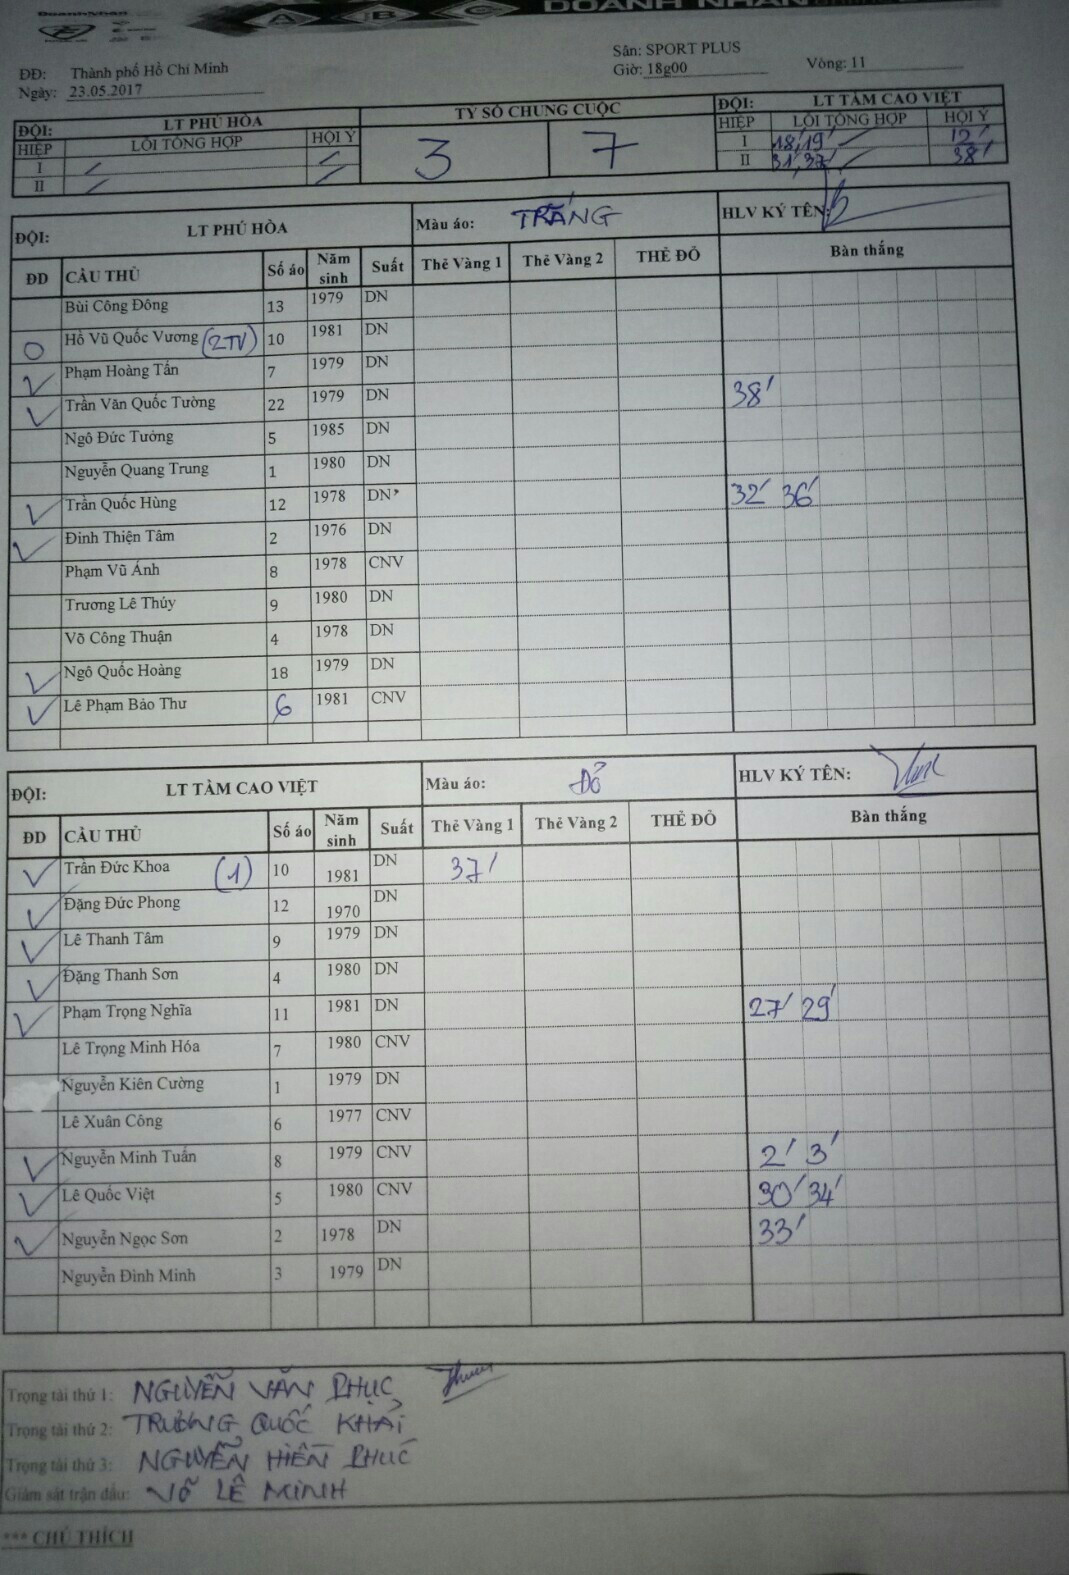 DoanhNhan A B C DOANH NHÂN
Sân: SPORT PLUS
ĐĐ: Thành phố Hồ Chí Minh Giờ: 18g00 Vòng: 11
Ngày: 23.05.2017
ĐỘI: LT PHÚ HÒA TỶ SỐ CHUNG CUỘC ĐỘI: LT TẦM CAO VIỆT
HIỆP LỖI TỔNG HỢP HỘI Ý 3 7 HIỆP LỖI TỔNG HỢP HỘI Ý
I I 18', 19' 12'
II II 31', 37' 38'
ĐỘI: LT PHÚ HÒA Màu áo: TRẮNG HLV KÝ TÊN:
ĐD CẦU THỦ Số áo Năm sinh Suất Thẻ Vàng 1 Thẻ Vàng 2 THẺ ĐỎ Bàn thắng
Bùi Công Đông 13 1979 DN
O Hồ Vũ Quốc Vương (2TV) 10 1981 DN
✓ Phạm Hoàng Tấn 7 1979 DN
✓ Trần Văn Quốc Tường 22 1979 DN 38'
Ngô Đức Tưởng 5 1985 DN
Nguyễn Quang Trung 1 1980 DN
✓ Trần Quốc Hùng 12 1978 DN 32' 36'
✓ Đinh Thiện Tâm 2 1976 DN
Phạm Vũ Ánh 8 1978 CNV
Trương Lê Thủy 9 1980 DN
Võ Công Thuận 4 1978 DN
✓ Ngô Quốc Hoàng 18 1979 DN
✓ Lê Phạm Bảo Thư 6 1981 CNV
ĐỘI: LT TẦM CAO VIỆT Màu áo: Đỏ HLV KÝ TÊN:
ĐD CẦU THỦ Số áo Năm sinh Suất Thẻ Vàng 1 Thẻ Vàng 2 THẺ ĐỎ Bàn thắng
✓ Trần Đức Khoa (1) 10 1981 DN 37'
✓ Đặng Đức Phong 12 1970 DN
✓ Lê Thanh Tâm 9 1979 DN
✓ Đặng Thanh Sơn 4 1980 DN
✓ Phạm Trọng Nghĩa 11 1981 DN 27' 29'
Lê Trọng Minh Hóa 7 1980 CNV
Nguyễn Kiên Cường 1 1979 DN
Lê Xuân Công 6 1977 CNV
✓ Nguyễn Minh Tuấn 8 1979 CNV 2' 3'
✓ Lê Quốc Việt 5 1980 CNV 30' 34'
✓ Nguyễn Ngọc Sơn 2 1978 DN 33'
Nguyễn Đình Minh 3 1979 DN
Trọng tài thứ 1: NGUYỄN VĂN PHỤC
Trọng tài thứ 2: TRƯƠNG QUỐC KHẢI
Trọng tài thứ 3: NGUYỄN HIỀN PHÚC
Giám sát trận đấu: VÕ LÊ MINH
*** CHÚ THÍCH